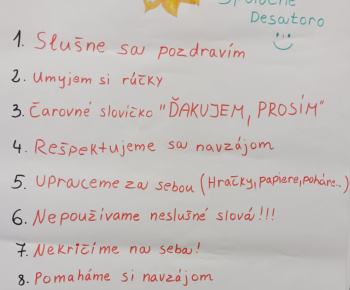 Spoločné
Desatoro
1. Slušne sa pozdravím
2. Umyjem si rúčky
3. Čarovné slovíčko "ĎAKUJEM, PROSÍM"
4. Rešpektujeme sa navzájom
5. Upraceme za sebou (Hračky, papiere, poháre..)
6. Nepoužívame neslušné slová!!!
7. Nekričíme na seba!
8. Pomaháme si navzájom